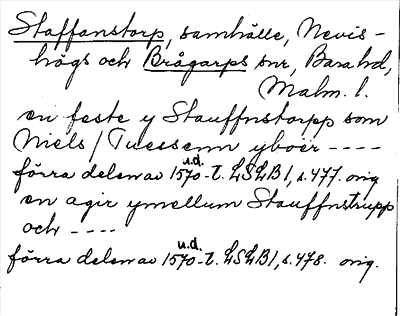 Staffanstorp, samhälle, Nevis-
högs och Brågarps snr, Bara hd,
Malm. l.
en feste y Stauffnstorpp som
Niels / Tuessenn yboer ----
u.d.
förra delen av 1570-t. LSLB1, s.477. orig
en agir ymellum Stauffnstrupp
och ----
u.d.
förra delen av 1570-t. LSLB1, s.478. orig.